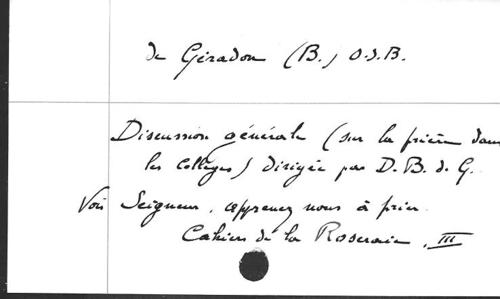 de Géradon (B.) O.S.B.
Discussion générale (sur la prière dans
les collèges) dirigée par D. B. de G.
Voir Seigneur, apprenez nous à prier
Cahiers de la Roseraie, III